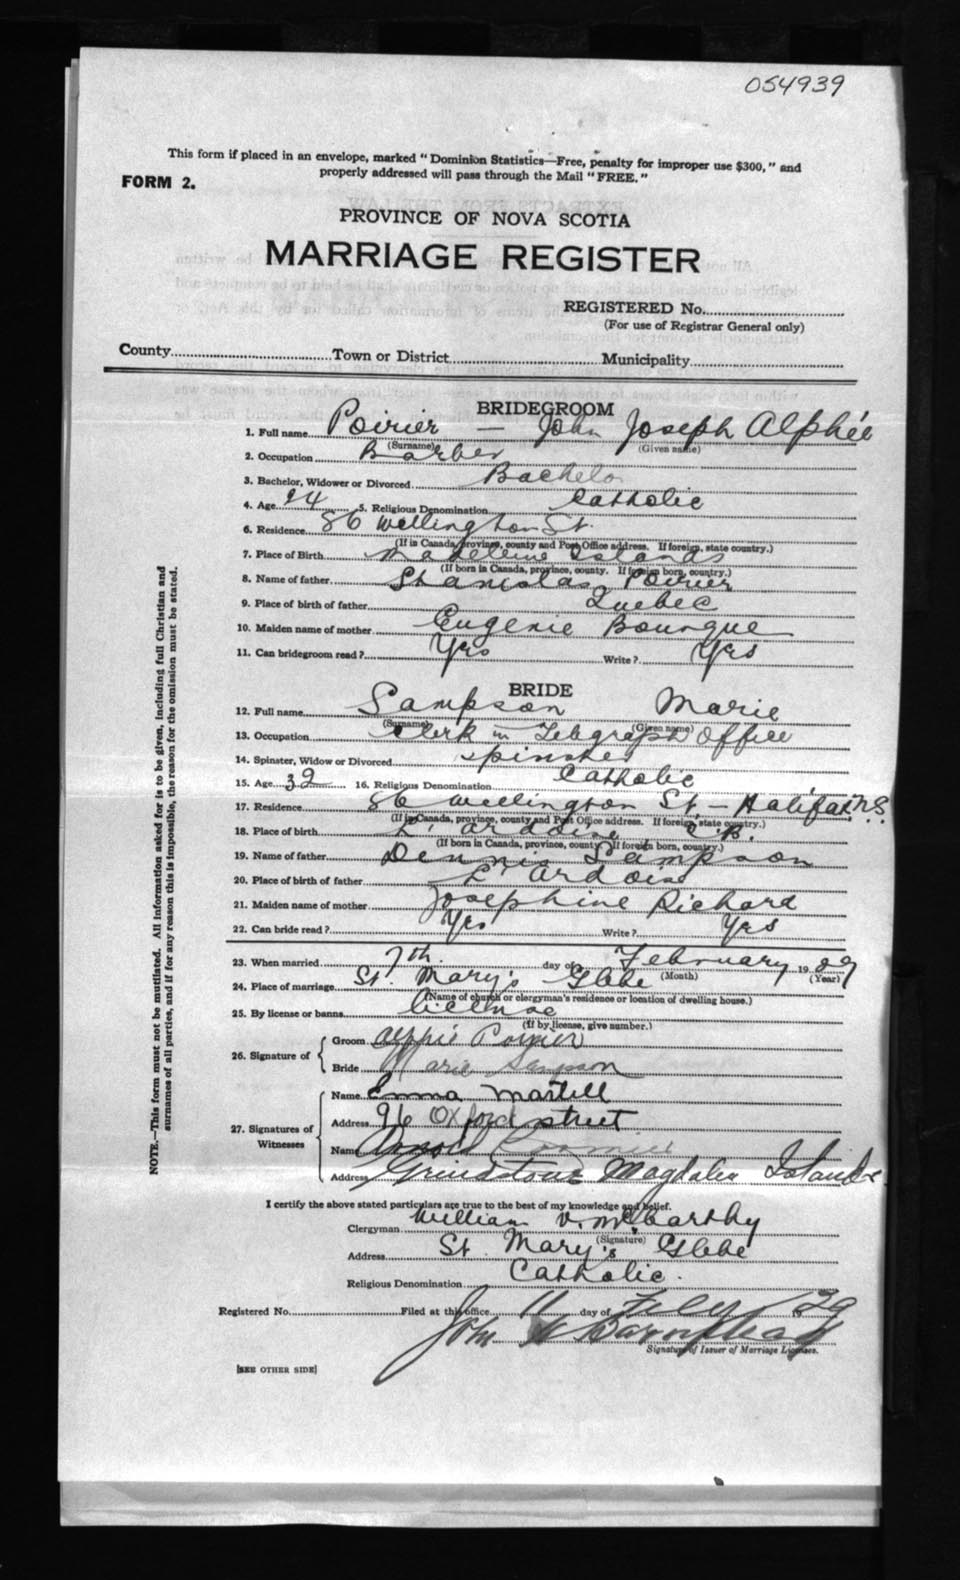 054939
This form if placed in an envelope, marked "Dominion Statistics—Free, penalty for improper use $300," and
properly addressed will pass through the Mail "FREE."
FORM 2.
PROVINCE OF NOVA SCOTIA
MARRIAGE REGISTER
REGISTERED No.
(For use of Registrar General only)
County Town or District Municipality
BRIDEGROOM
1. Full name Poirier — John Joseph Alphée
(Surname) (Given name)
2. Occupation Barber
3. Bachelor, Widower or Divorced Bachelor
4. Age 24 5. Religious Denomination Catholic
6. Residence 86 Wellington St.
(If in Canada, province, county and Post Office address. If foreign, state country.)
7. Place of Birth Madeleine Islands
(If born in Canada, province, county. If foreign born, country.)
8. Name of father Stanislas Poirier
9. Place of birth of father Quebec
10. Maiden name of mother Eugenie Bourque
11. Can bridegroom read? Yes Write? Yes
BRIDE
12. Full name Sampson Marie
(Surname) (Given name)
13. Occupation Clerk in Telegraph Office
14. Spinster, Widow or Divorced Spinster
15. Age 32 16. Religious Denomination Catholic
17. Residence 86 Wellington St — Halifax N.S.
(If in Canada, province, county and Post Office address. If foreign, state country.)
18. Place of birth L'Ardoise C.B.
(If born in Canada, province, county. If foreign born, country.)
19. Name of father Dennis Sampson
20. Place of birth of father L'Ardoise
21. Maiden name of mother Josephine Richard
22. Can bride read? Yes Write? Yes
23. When married 7th day of February 19 29
(Month) (Year)
24. Place of marriage St. Mary's Glebe
(Name of church or clergyman's residence or location of dwelling house.)
25. By license or banns License
(If by license, give number.)
26. Signature of
Groom Alphie Poirier
Bride Marie Sampson
27. Signatures of Witnesses
Name Emma Martell
Address 96 Oxford street
Name Arnold
Address Grindstone Magdalen Islands
I certify the above stated particulars are true to the best of my knowledge and belief.
Clergyman William V. McCarthy
(Signature)
Address St. Mary's Glebe
Religious Denomination Catholic.
Registered No. Filed at this office 11 day of 29
John
Signature of Issuer of Marriage Licenses.
[SEE OTHER SIDE]
NOTE.—This form must not be mutilated. All information asked for is to be given, including full Christian and
surnames of all parties, and if for any reason this is impossible, the reason for the omission must be stated.